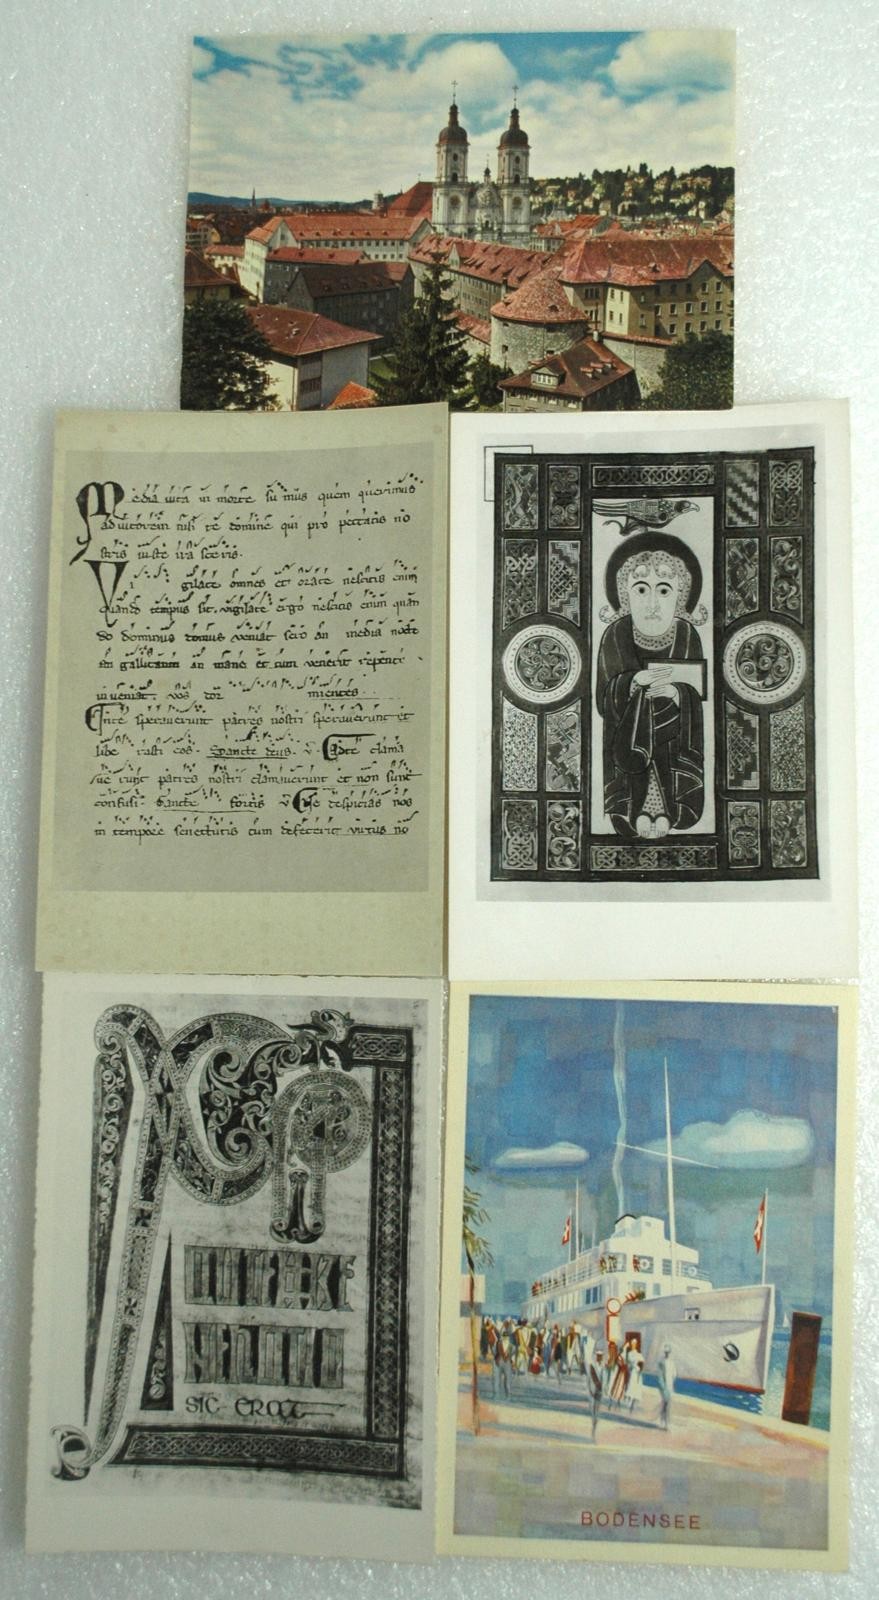 Media vita in morte sumus quem querimus
adiutorem nisi te domine qui pro peccatis no
stris iuste irasceris.
Vi gilate omnes et orate nescitis enim
quando tempus sit. vigilate ergo nescitis enim quan
do dominus domus veniat sero an media nocte
an gallicantu an mane et cum venerit repente
inveniat vos dor mientes.
speraverunt patres nostri speraverunt et
libe rasti eos. Sancte deus. v. Ad te clama
verunt patres nostri clamaverunt et non sunt
confusi. Sancte fortis v Ne despicias nos
in tempore senectutis cum defecerit virtus no
XPI
AUTEM
GENERATIO
SIC ERAT
BODENSEE